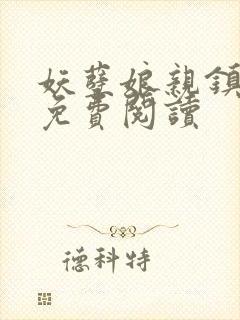 妖孽娘親鎮
免費閱讀
德科特